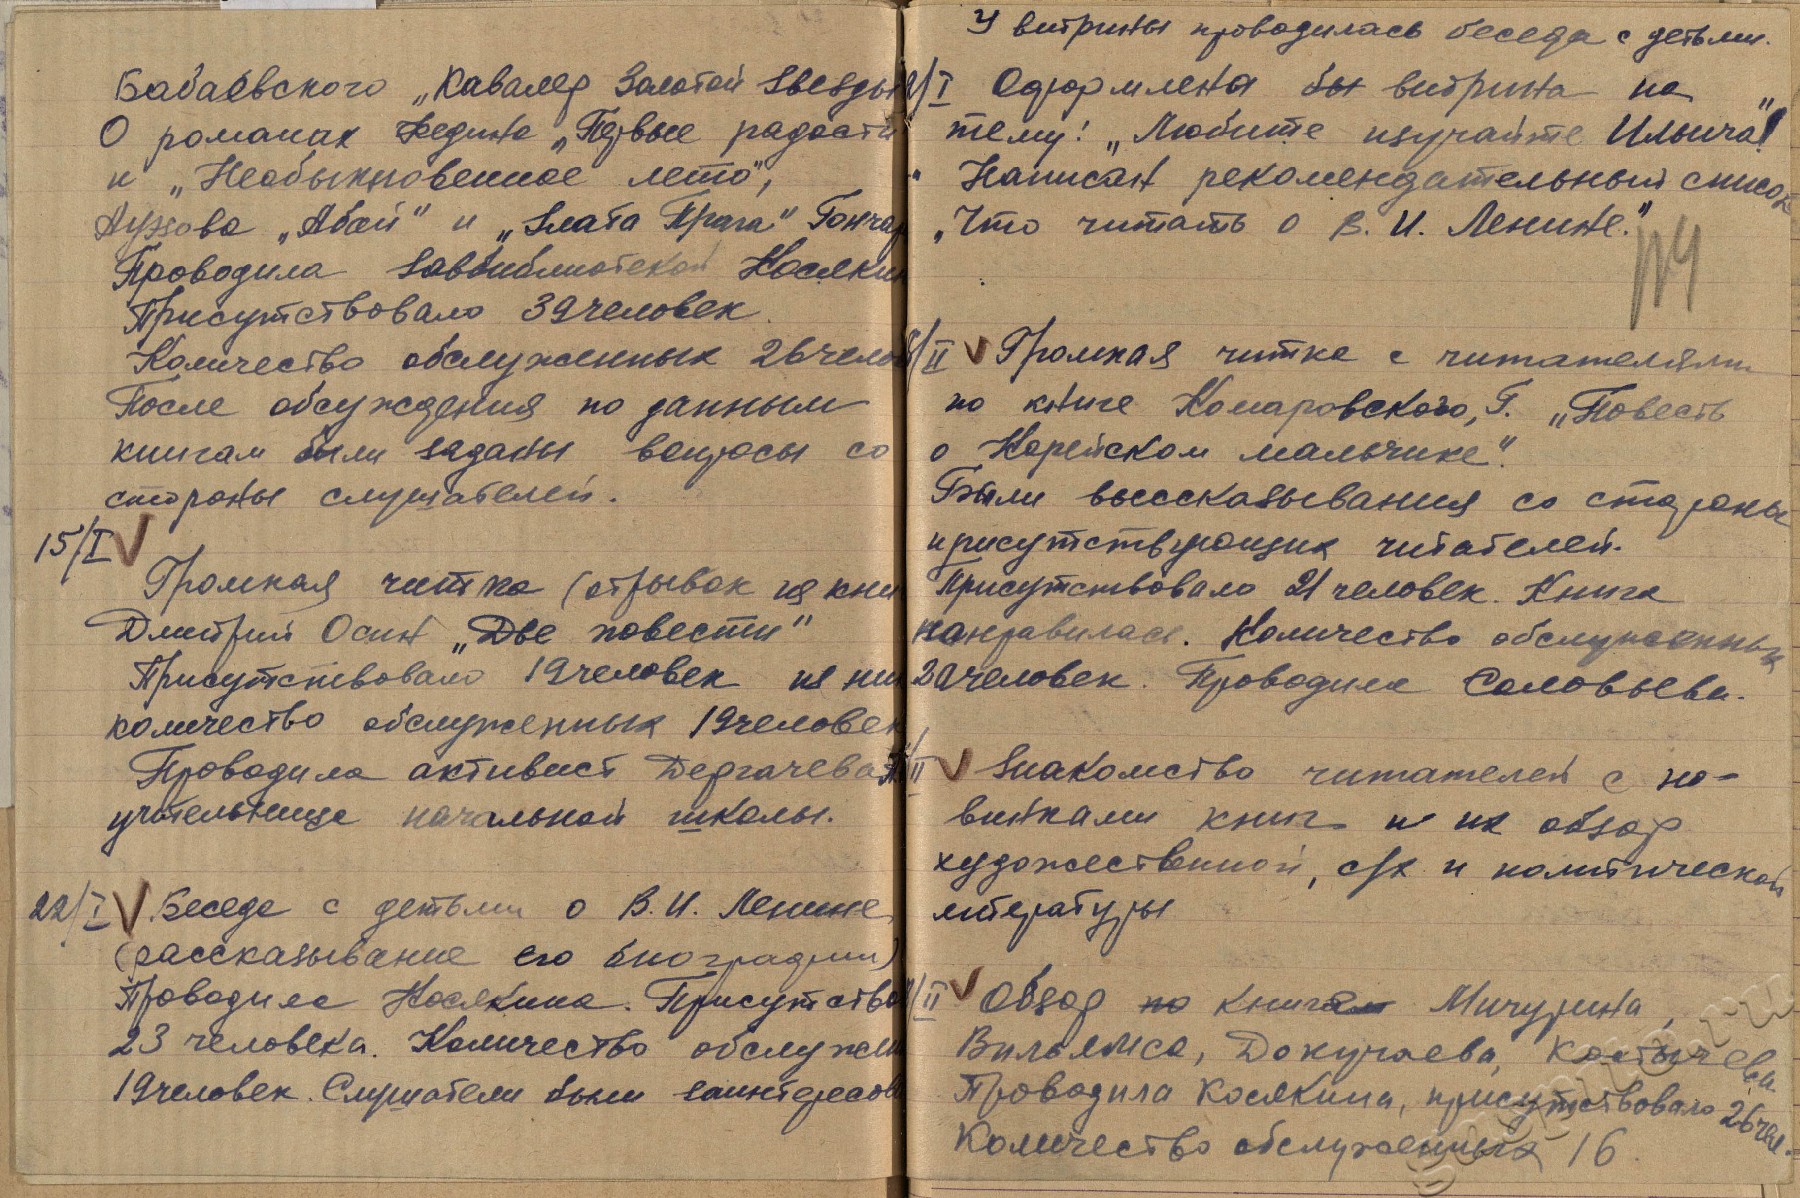 Бабаевского „Кавалер Золотой Звезды
О романах Федина „Первые радости
и „Необыкновенное лето",
Ауэзова „Абай" и „Злата Прага" Гончар
Проводила завбиблиотекой Косякин
Присутствовало 39 человек.
Количество обслуженных 26 челов
После обсуждения по данным
книгам были заданы вопросы со
стороны слушателей.
15/I
Громкая читка (отрывок из кни
Дмитрий Осин „Две повести"
Присутствовало 19 человек из них
количество обслуженных 19 человек
Проводила активист Дергачева
учительница начальной школы.
22/I Беседа с детьми о В. И. Ленине,
(рассказывание его биографии)
Проводила Косякина. Присутство
23 человека. Количество обслужен
19 человек. Слушатели были заинтересов
У витрины проводилась беседа с детьми.
/I Оформлены бы витрина на
тему: „Любите изучайте Ильича"!
Написан рекомендательный список
„Что читать о В. И. Ленине."
/II Громкая читка с читателями
по книге Комаровского, Г. „Повесть
о Корейском мальчике".
Были высссказывания со стороны
присутствующих читателей.
Присутствовало 21 человек. Книга
понравилась. Количество обслуженных
20 человек. Проводила Соловьева.
/II Знакомство читателей с но-
винками книг и их обзор
художественной, с/х и политической
литературы
/II Обзор по книгам Мичурина,
Вильямса, Докучаева, Костычева.
Проводила Косякина, присутствовало 26 чел.
Количество обслуженных 16.